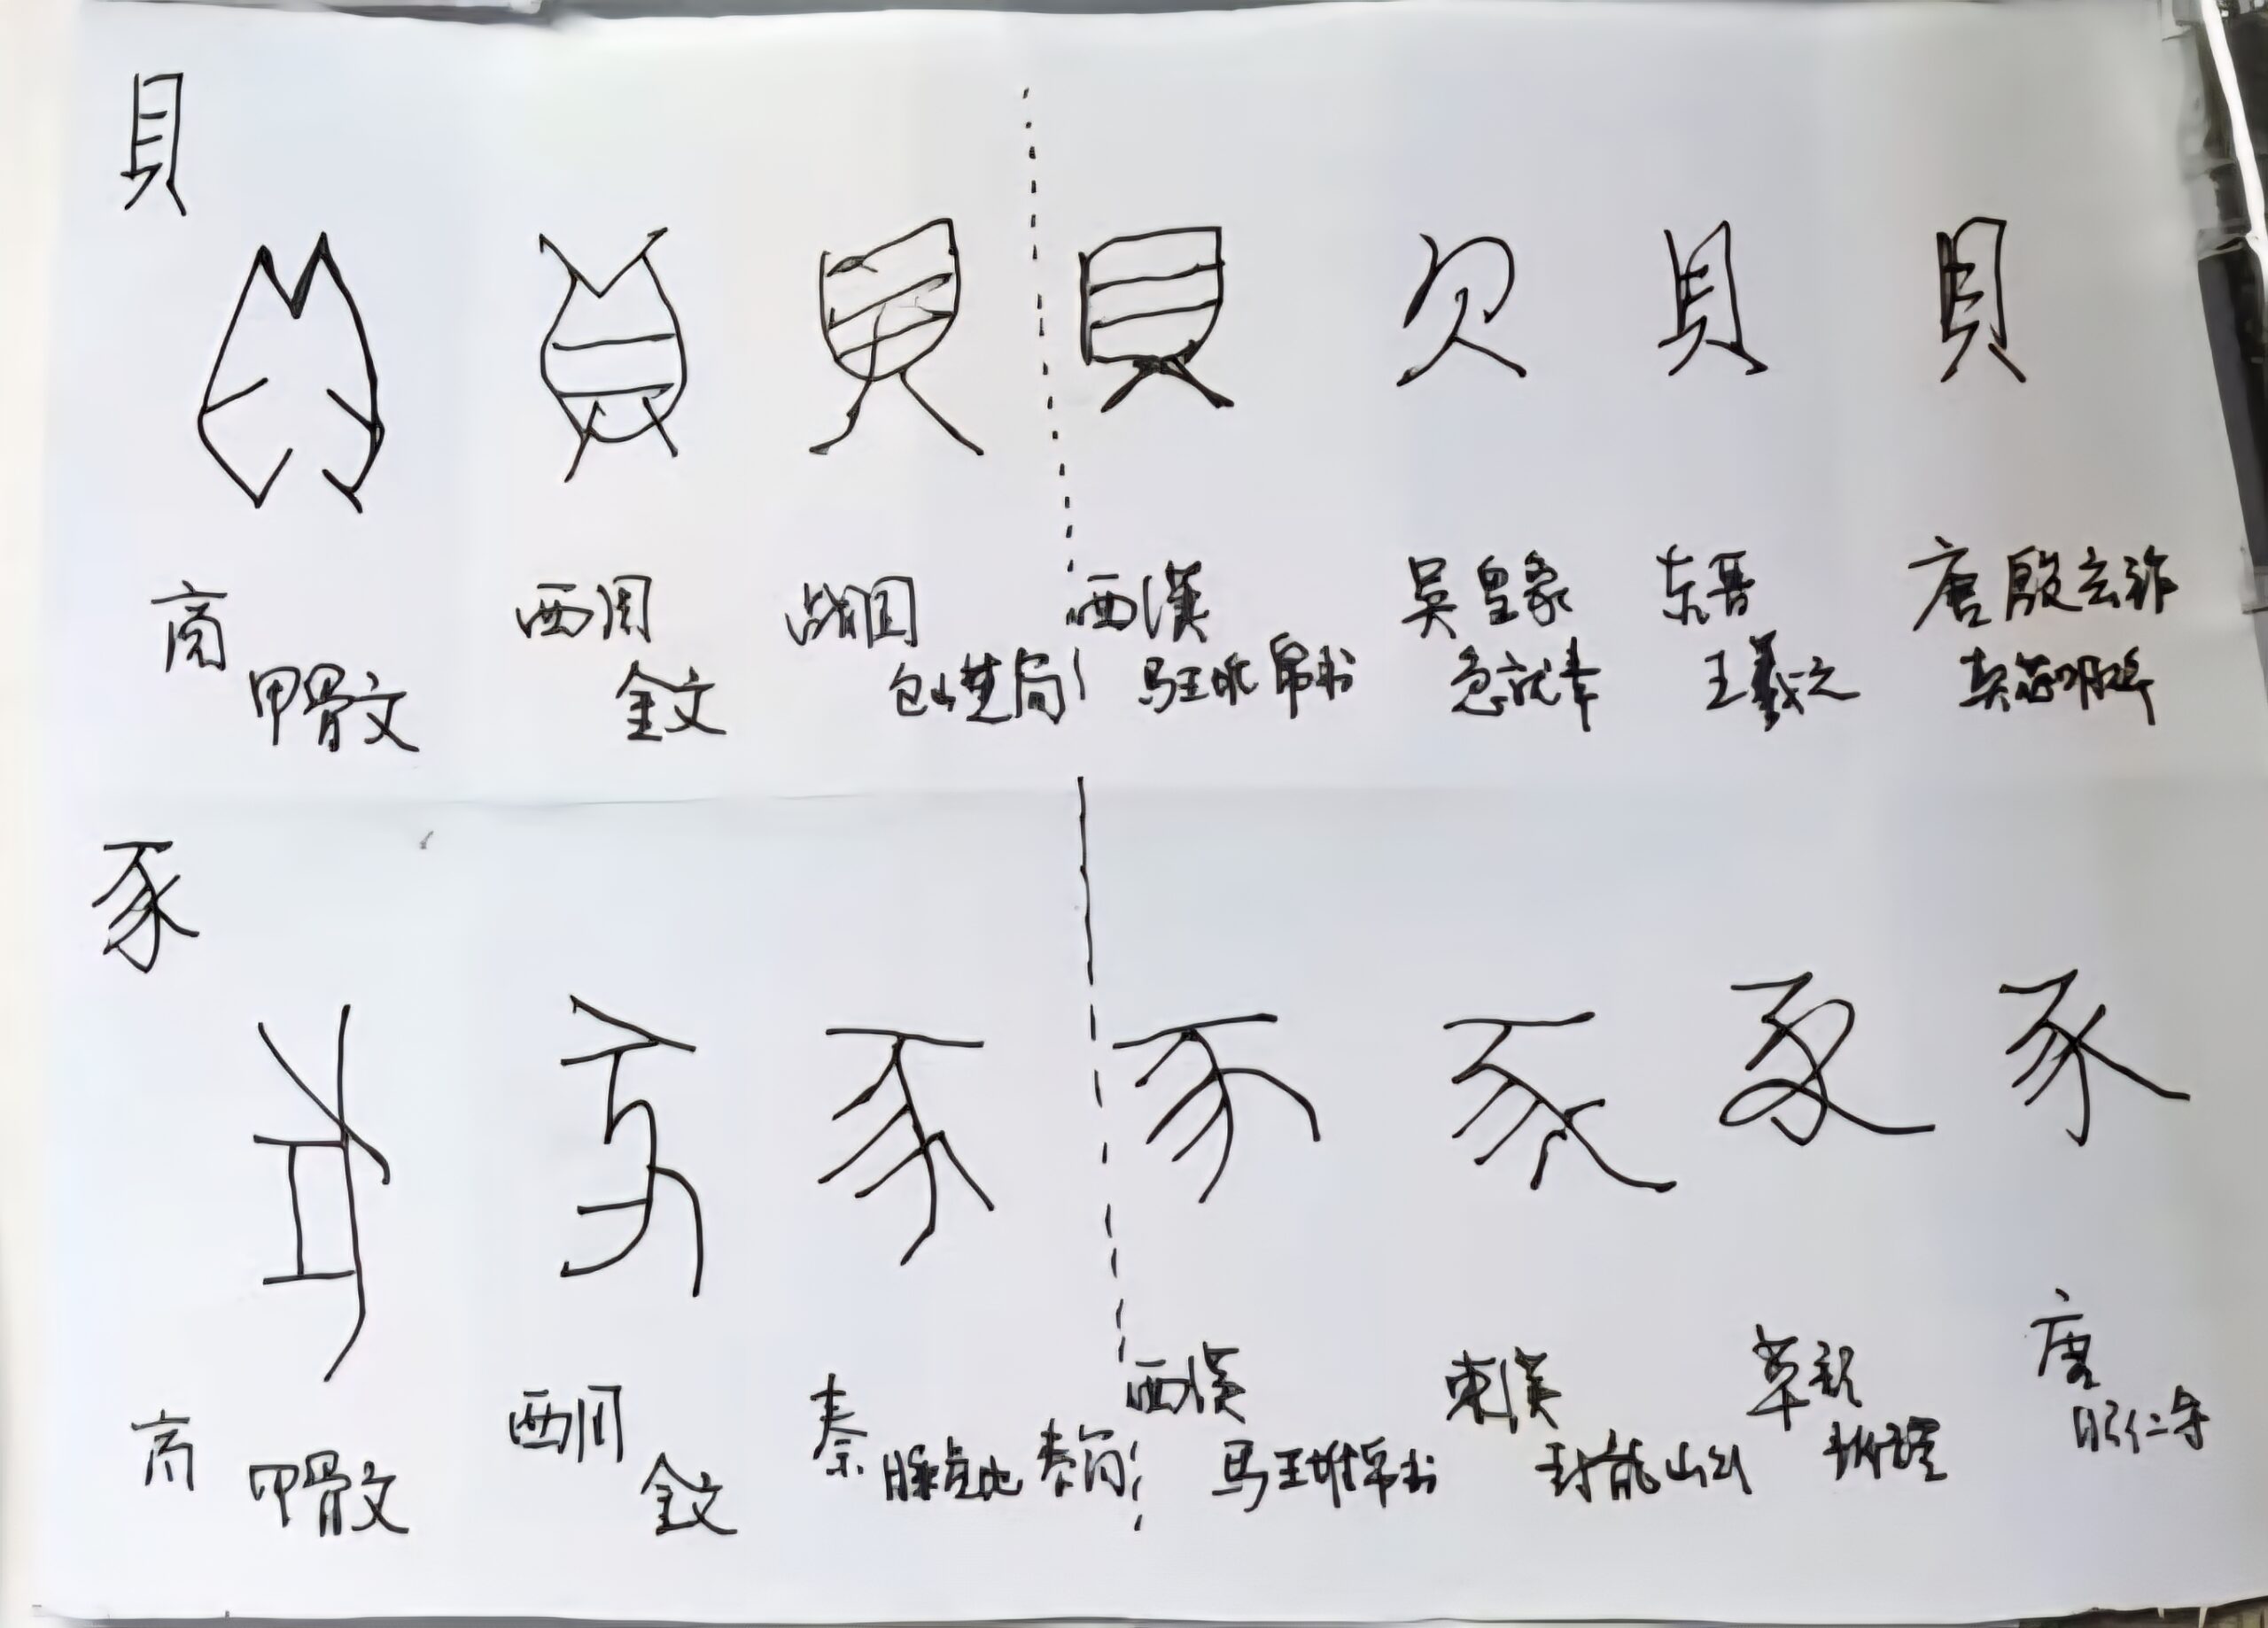 貝
商 西周 战国 西漢 吴皇象 东晋 唐殷玄祚
甲骨文 金文 包山楚简 马王堆帛书 急就章 王羲之 契苾明碑
豕
商 西周 秦 西漢 東漢 草韵 唐
甲骨文 金文 睡虎地秦简 马王堆帛书 封龙山 昭仁寺